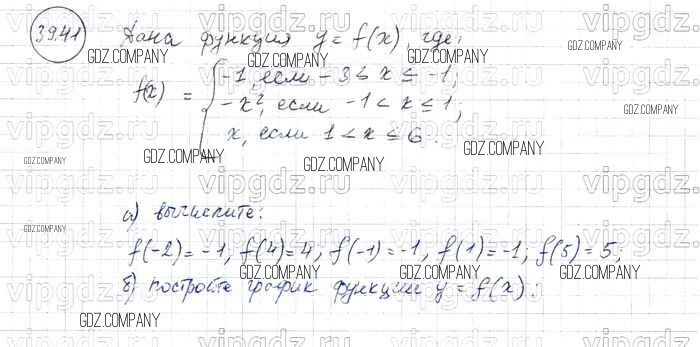 39.41 Дана функция y = f(x), где:
f(x) = { -1, если -3 ≤ x ≤ -1;
-x², если -1 < x ≤ 1;
x, если 1 < x ≤ 6.
а) вычислите:
f(-2) = -1, f(4) = 4, f(-1) = -1, f(1) = -1; f(5) = 5;
б) постройте график функции y = f(x):
vipgdz.ru
GDZ.COMPANY